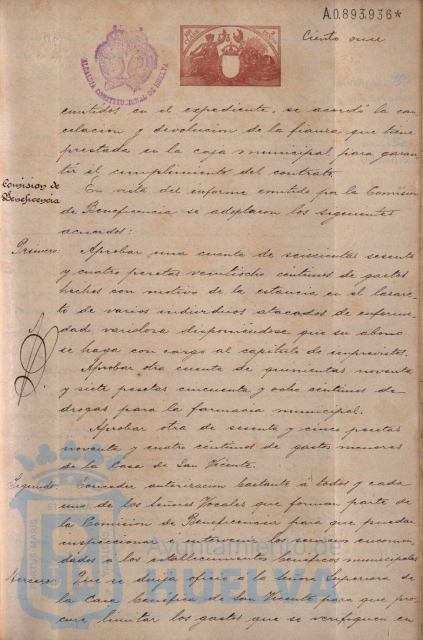 A.0.893.936*
Ciento once
ALCALDIA CONSTITUCIONAL DE HUELVA
emitidos en el expediente, se acordó la can-
celacion y devolucion de la fianza que tiene
prestada en la caja municipal para garan-
tir el cumplimiento del contrato.
Comision de
Beneficencia
En vista del informe emitido por la Comision
de Beneficencia se adoptaron los siguientes
acuerdos:
Primero: Aprobar una cuenta de seiscientas sesenta
y cuatro pesetas veintiocho centimos de gastos
hechos con motivo de la estancia en el lazare-
to de varios individuos atacados de enferme-
dad variolosa disponiéndose que su abono
se haga con cargo al capítulo de imprevistos.
Aprobar otra cuenta de quinientas noventa
y siete pesetas cincuenta y ocho centimos de
drogas para la farmacia municipal.
Aprobar otra de sesenta y cinco pesetas
noventa y cuatro centimos de gastos menores
de la Casa de San Vicente.
Segundo: Conceder autorizacion bastante á todos y cada
uno de los Señores Vocales que forman parte de
la Comision de Beneficencia para que puedan
inspeccionar é intervenir los servicios encomen-
dados á los establecimientos benéficos municipales
Tercero: Que se dirija oficio á la Señora Superiora de
la Casa benéfica de San Vicente para que pro-
cure limitar los gastos que se verifiquen en
Ayuntamiento de
HUELVA